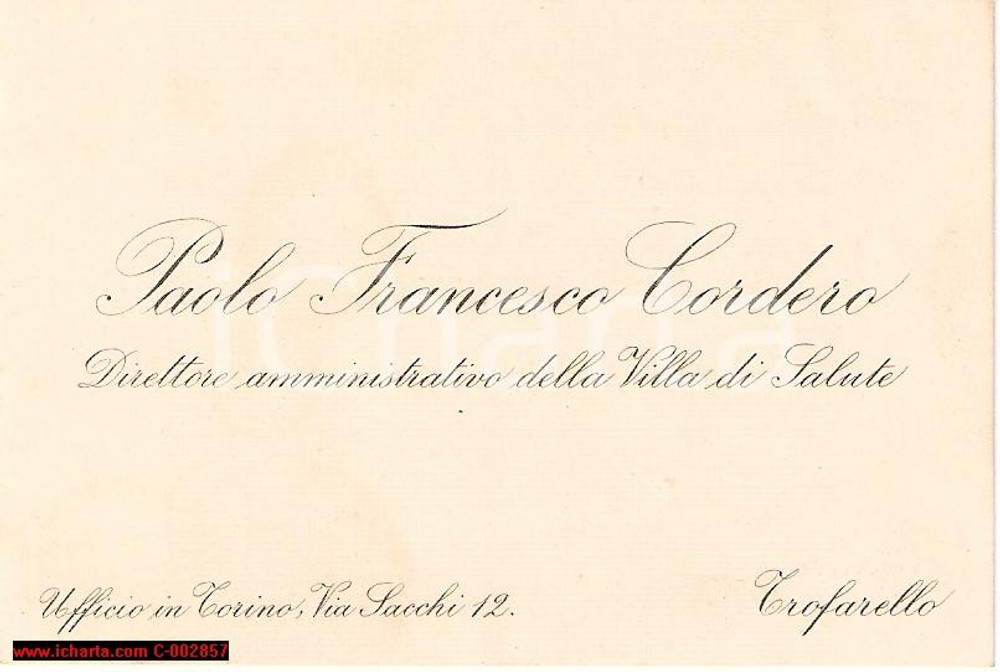 Paolo Francesco Cordero
Direttore amministrativo della Villa di Salute
Ufficio in Torino, Via Sacchi 12.
Trofarello
icharta
www.icharta.com C-002857